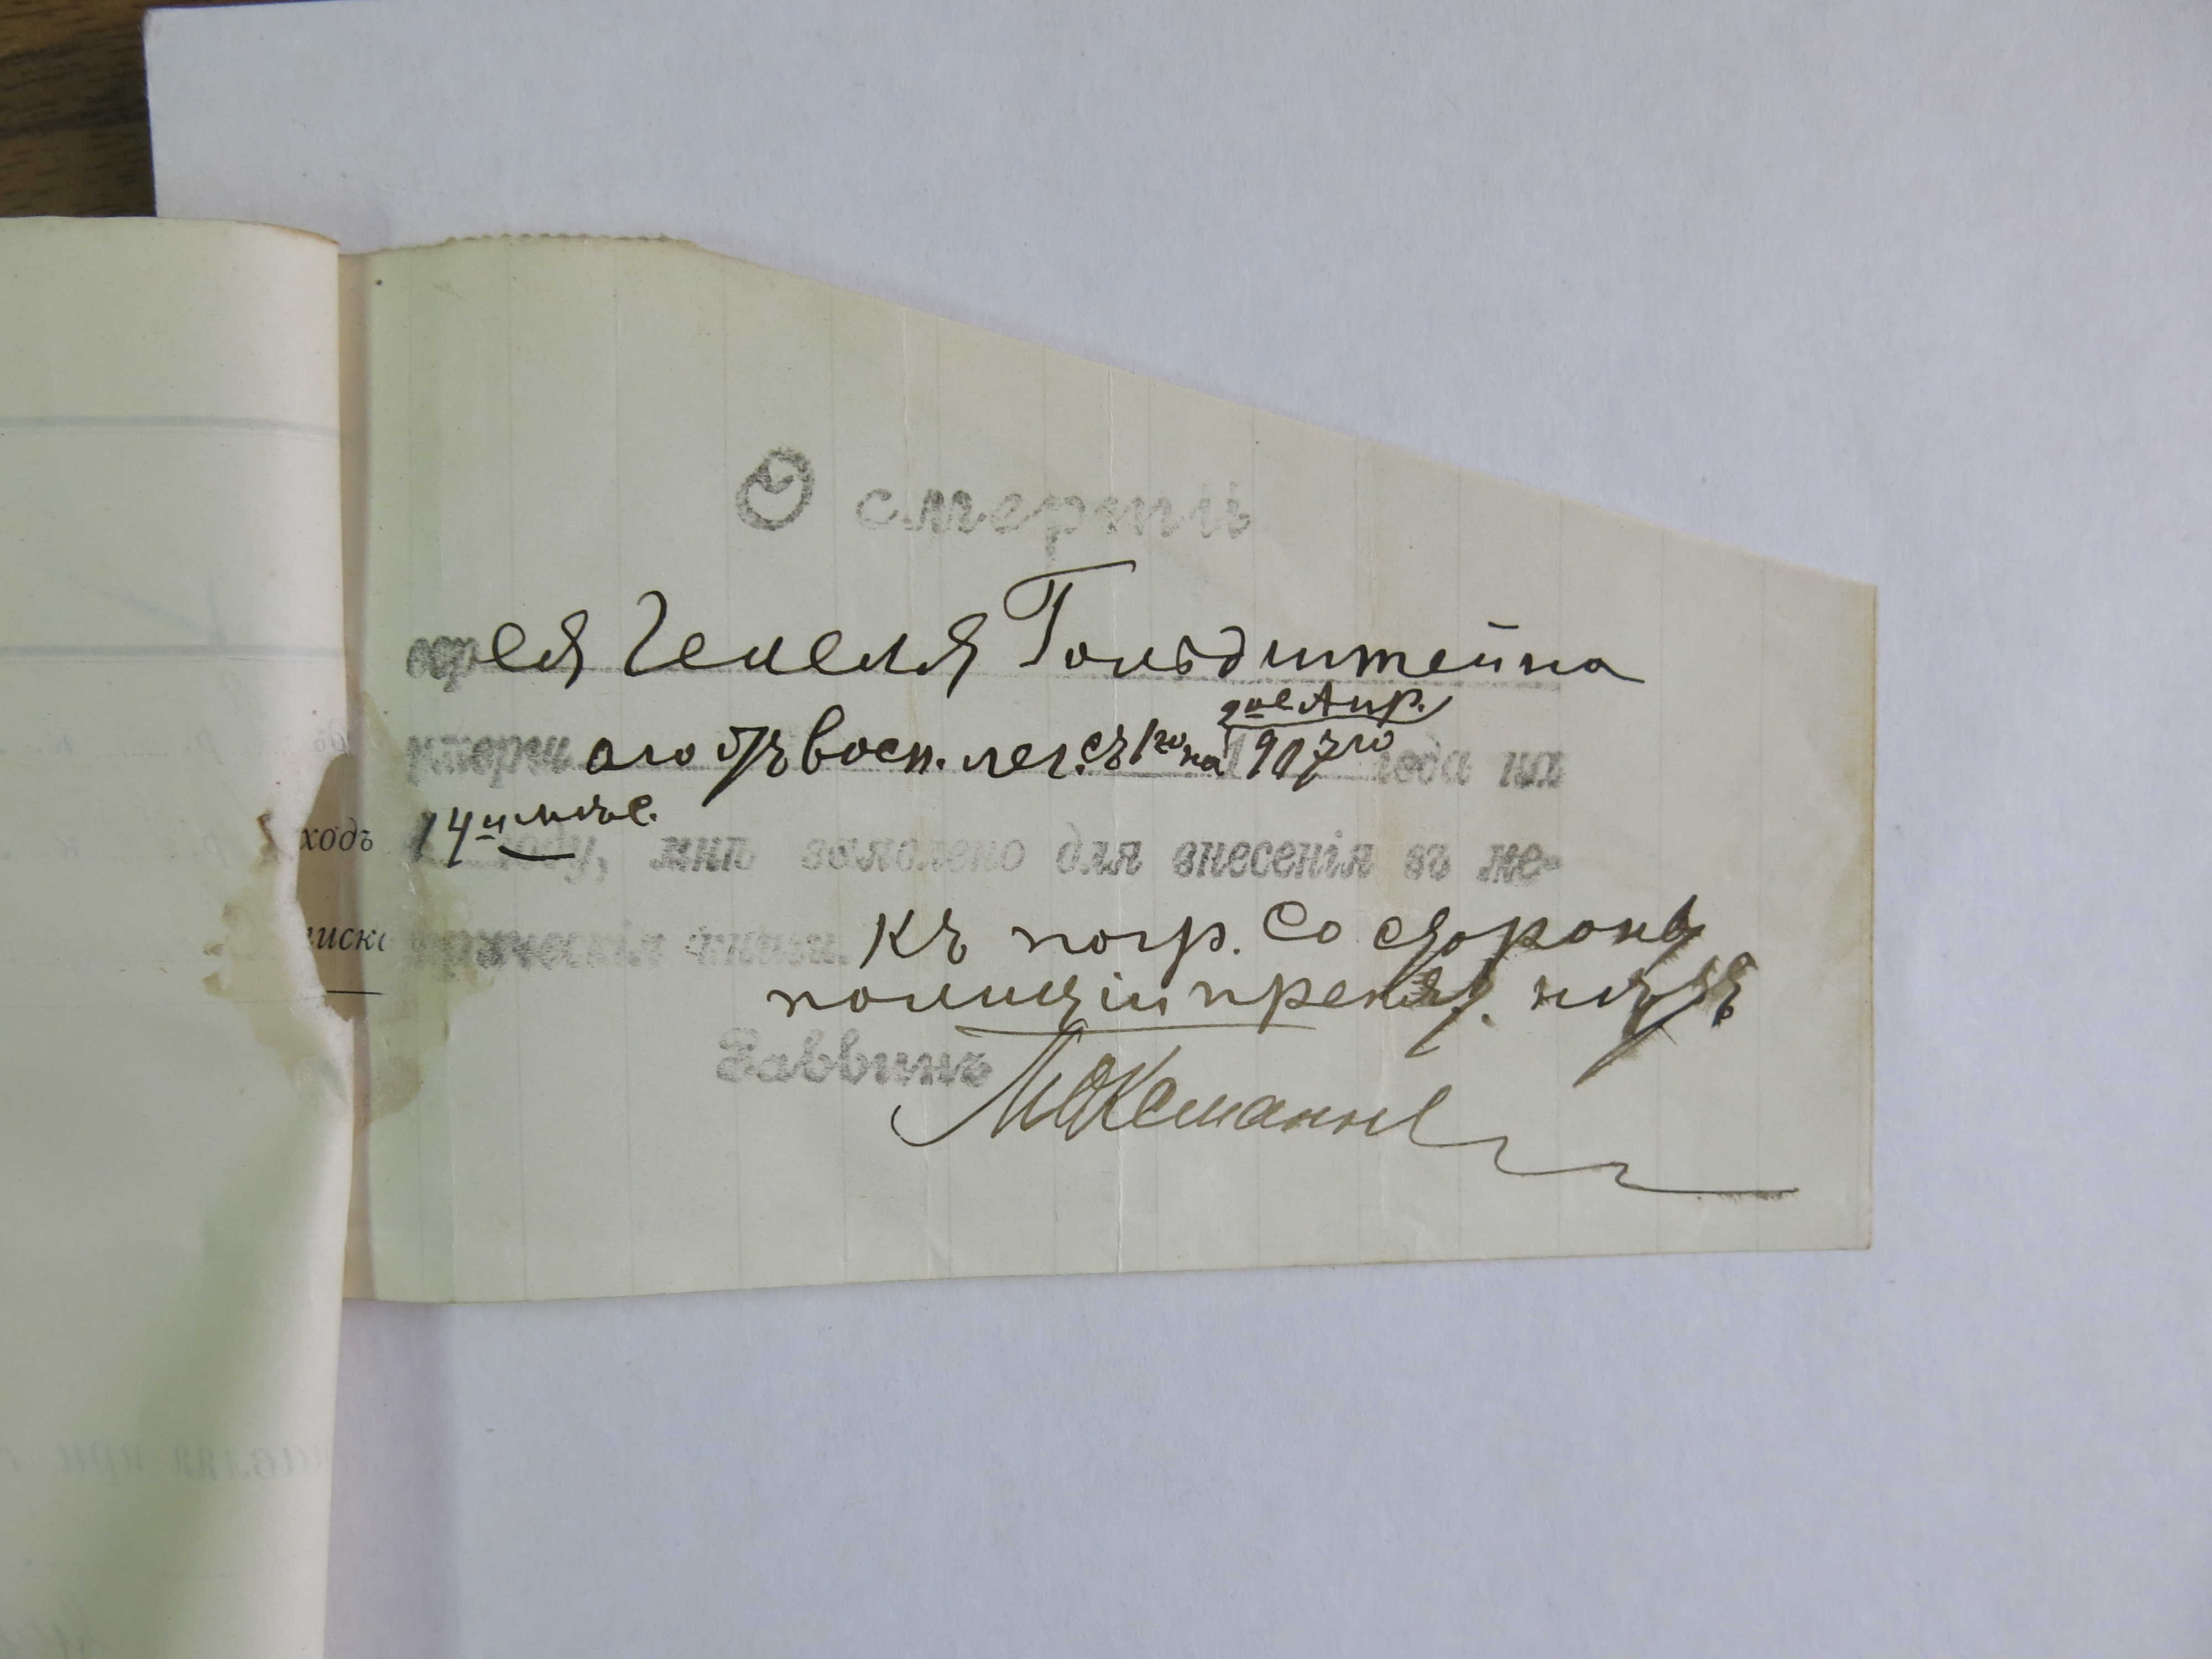 О смерти
еврея Гемеля Гольдштейна
умерш аго отъ восп. лег. съ 1го на 2ое Апр. 1907го года на
14и мѣс. году, мнѣ заявлено для внесенія въ ме-
трическія книги. Къ погр. со стороны
полиціи препят. нѣтъ
Раввинъ
ходъ